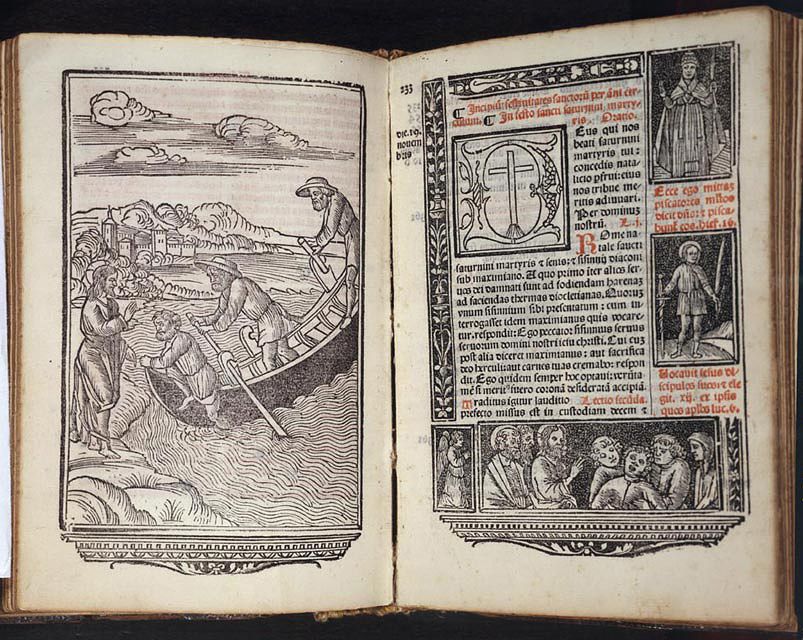 233
¶ Incipiūt festiuitates sanctorū per āni cir
culum. ¶ In festo sancti saturnini marty
ris. Oratio.
Die. 19.
nouem
bris
DEus qui nos
beati saturnini
martyris tui:
concedis nata
licio p̄frui: eius
nos tribue me
ritis adiuuari.
Per dominum
nostrū. L. j.
ROme na
tale sancti
saturnini martyris & senis: & sisinnij diaconi
sub maximiano. A quo primo iter alios ser
uos dei damnati sunt ad fodiendam harenam
ad faciendas thermas diocletianas. Quorum
vnum sisinnium sibi presentatum: cum in-
terrogasset idem maximianus quis vocare
tur. respondit: Ego peccator sisinnius seruus
seruorum domini nostri iesu christi. Cui cum
post alia diceret maximianus: aut sacrifica
deo herculi: aut carnes tuas cremabo: respon
dit. Ego quidem semper hoc optaui: verūta
mē si merit' fuero coronā desideratā accipiā.
Traditus igitur laudicio Lectio secūda.
prefecto missus est in custodiam decem &
Ecce ego mittaʒ
piscatores mltos
dicit dn̄s: & pisca
bunt eos. hieʳ. 16.
Uocauit iesus di
scipulos suos: & ele
git. xij. ex ipsis
quos apl̄os luc. 6.